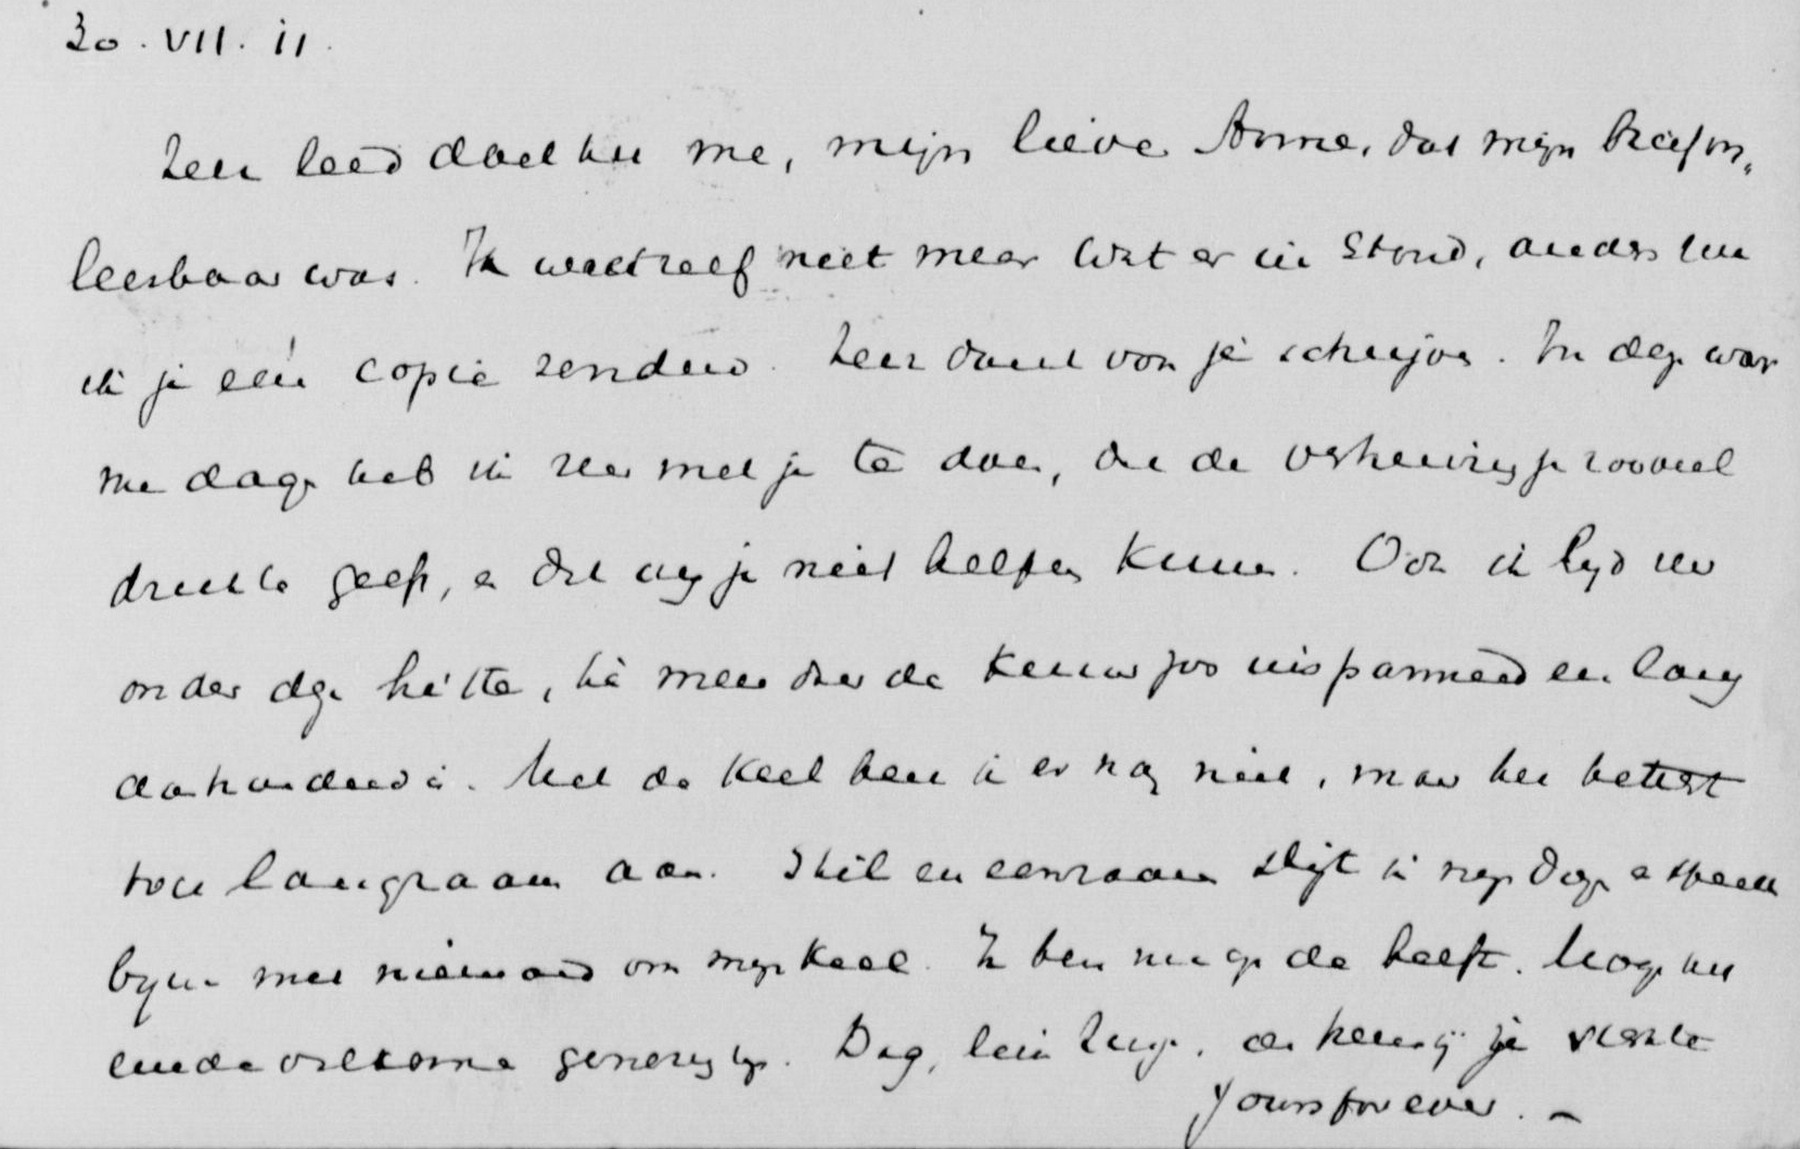 30.VII.11.
Zeer leed doet het me, mijn lieve Anna, dat mijn brief on„
leesbaar was. Ik weet zelf niet meer wat er in stond, anders zou
ik je een copie zenden. Zeer dank voor je schrijven. In deze war
me dagen heb ik zeer met je te doen, die de verhuizing je zooveel
drukte geeft, en dat wij je niet helpen kunnen. Ook ik lijd zeer
onder deze hitte, die meer dan de kuur zoo uitspannend en lang
is. Met de keel ben ik er nog niet, maar het betert
toch langzaam aan. Stil en eenzaam slijt ik mijn dagen en spreek
bijna met niemand om mijn keel. Ik ben nu op de helft. Moge het
einde volkomen genezing zijn. Dag, lieve Zusje, de hemel je sterkte
Yours for ever. –